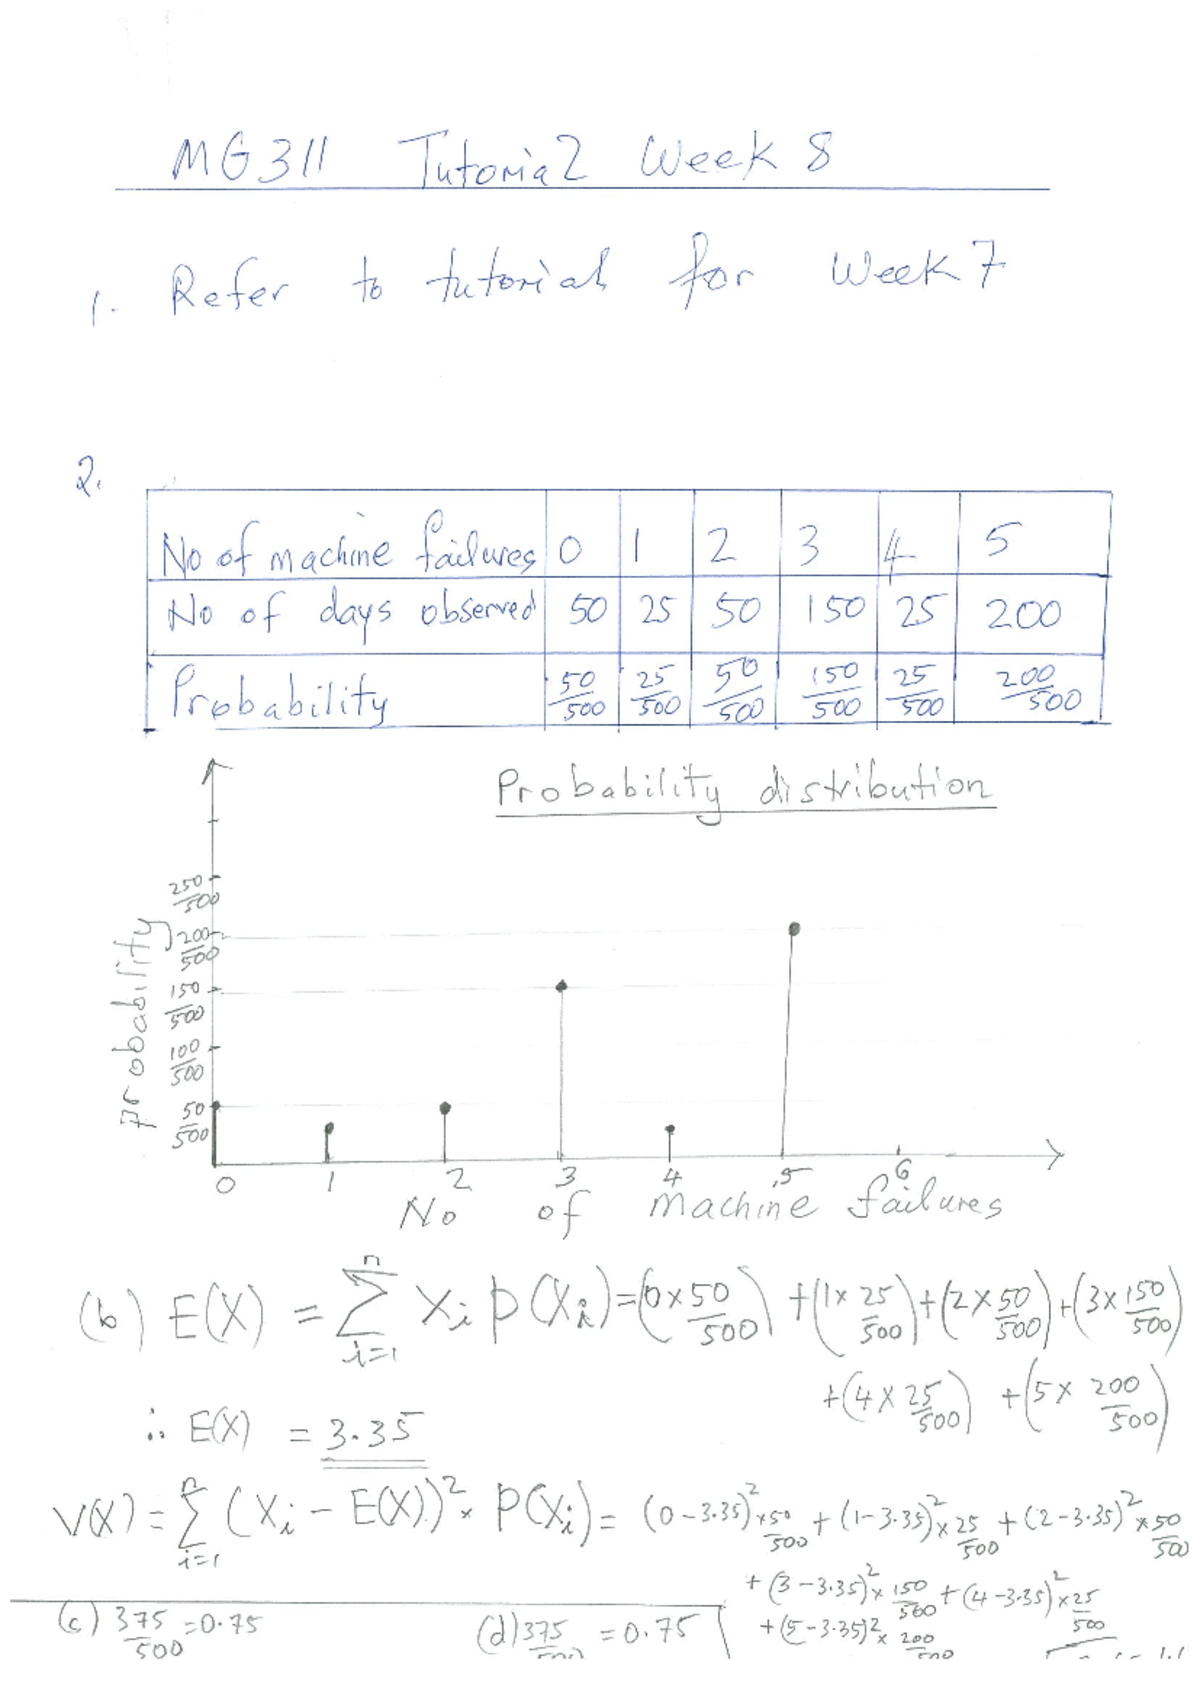 MG311 Tutorial Week 8
1. Refer to tutorial for Week 7
2.
No of machine failures 0 1 2 3 4 5
No of days observed 50 25 50 150 25 200
Probability 50/500 25/500 50/500 150/500 25/500 200/500
Probability distribution
probability
250/500
200/500
150/500
100/500
50/500
0 1 2 3 4 5 6
No of machine failures
(b) E(X) = n Σ i=1 Xi P(Xi) = (0 × 50/500) + (1 × 25/500) + (2 × 50/500) + (3 × 150/500)
+ (4 × 25/500) + (5 × 200/500)
∴ E(X) = 3.35
V(X) = n Σ i=1 (Xi - E(X))² × P(Xi) = (0-3.35)² × 50/500 + (1-3.35)² × 25/500 + (2-3.35)² × 50/500
+ (3-3.35)² × 150/500 + (4-3.35)² × 25/500
+ (5-3.35)² × 200/500
(c) 375/500 = 0.75 (d) 375/500 = 0.75